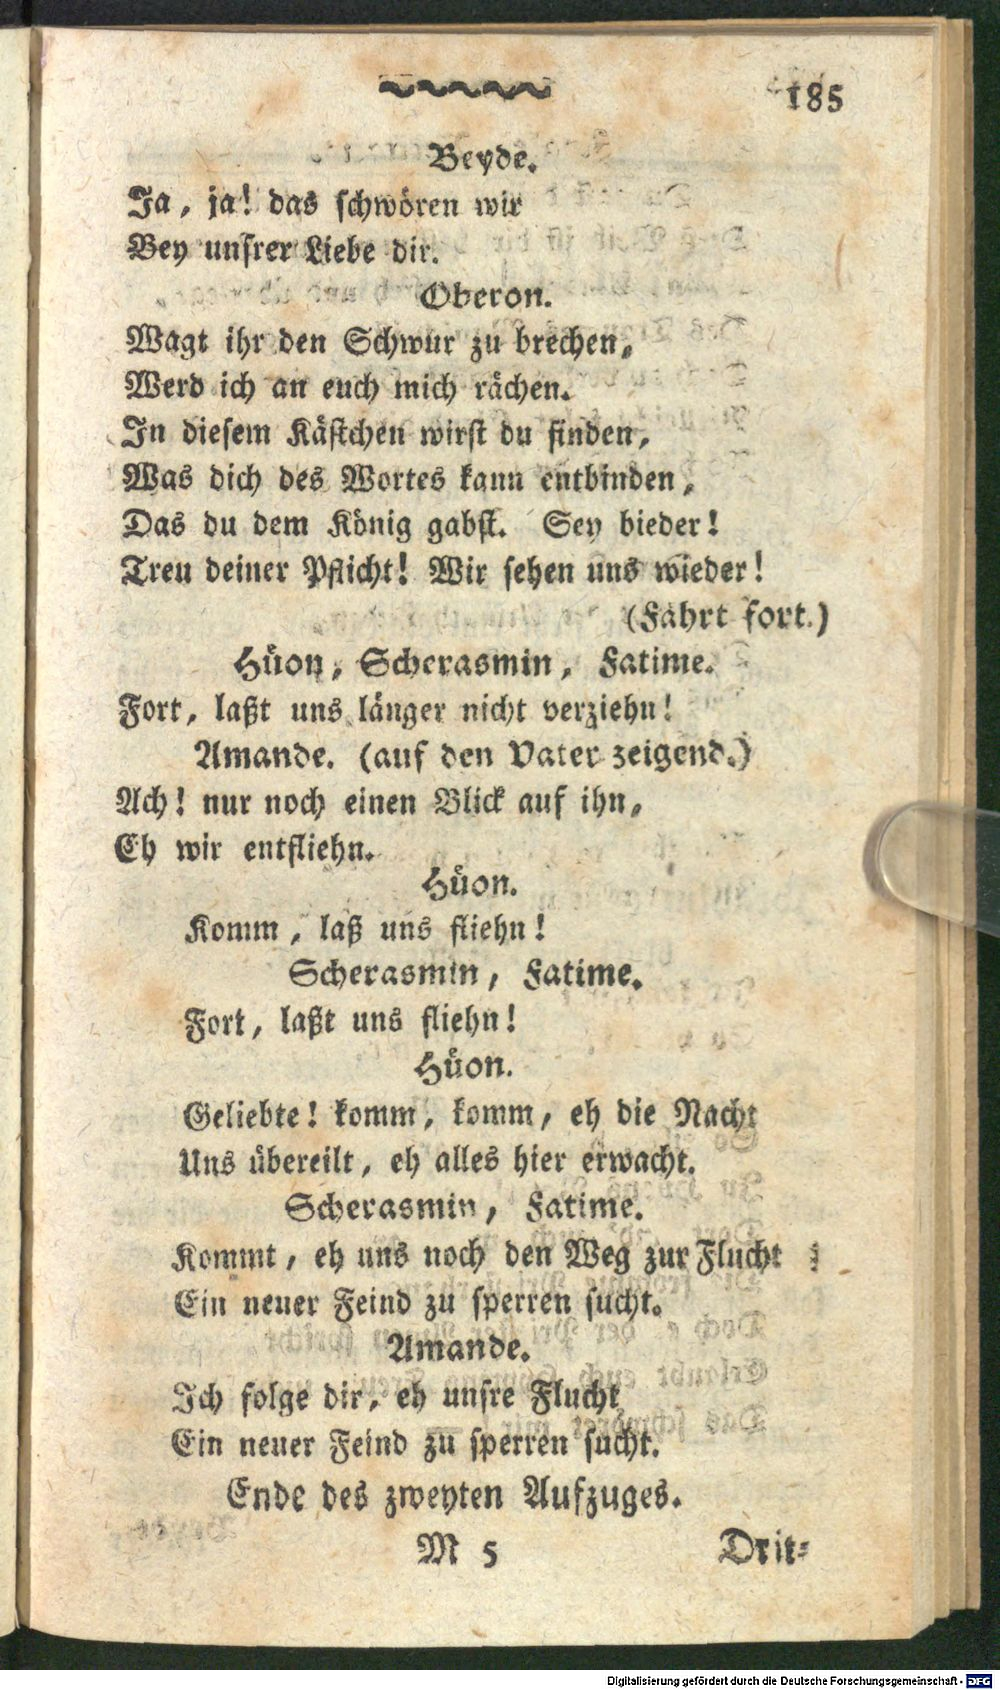 185
Beyde.
Ja, ja! das schwören wir
Bey unsrer Liebe dir.
Oberon.
Wagt ihr den Schwur zu brechen,
Werd ich an euch mich rächen.
In diesem Kästchen wirst du finden,
Was dich des Wortes kann entbinden,
Das du dem König gabst. Sey bieder!
Treu deiner Pflicht! Wir sehen uns wieder!
(Fährt fort.)
Hüon, Scherasmin, Fatime.
Fort, laßt uns länger nicht verziehn!
Amande. (auf den Vater zeigend.)
Ach! nur noch einen Blick auf ihn,
Eh wir entfliehn.
Hüon.
Komm, laß uns fliehn!
Scherasmin, Fatime.
Fort, laßt uns fliehn!
Hüon.
Geliebte! komm, komm, eh die Nacht
Uns übereilt, eh alles hier erwacht.
Scherasmin, Fatime.
Kommt, eh uns noch den Weg zur Flucht
Ein neuer Feind zu sperren sucht.
Amande.
Ich folge dir, eh unsre Flucht
Ein neuer Feind zu sperren sucht.
Ende des zweyten Aufzuges.
M 5 Drit-
Digitalisierung gefördert durch die Deutsche Forschungsgemeinschaft - DFG